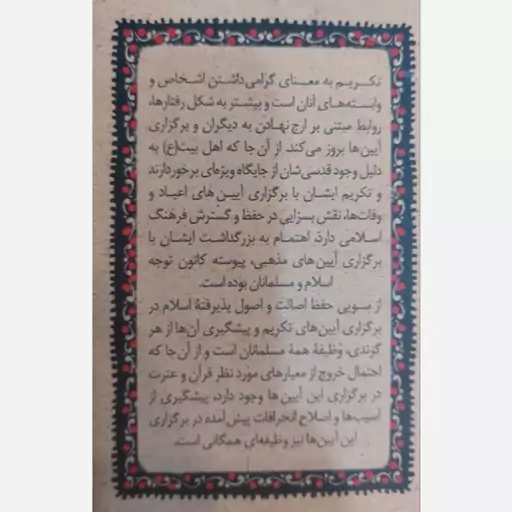 تکریم به معنای گرامی‌داشتن اشخاص و
وابسته‌های آنان است و بیشتر به شکل رفتارها،
روابط مبتنی بر ارج نهادن به دیگران و برگزاری
آیین‌ها بروز می‌کند. از آن‌جا که اهل بیت(ع) به
دلیل وجود قدسی‌شان از جایگاه ویژه‌ای برخوردارند
و تکریم ایشان با برگزاری آیین‌های اعیاد و
وفات‌ها، نقش بسزایی در حفظ و گسترش فرهنگ
اسلامی دارد، اهتمام به بزرگداشت ایشان با
برگزاری آیین‌های مذهبی، پیوسته کانون توجه
اسلام و مسلمانان بوده است.
از سویی حفظ اصالت و اصول پذیرفتهٔ اسلام در
برگزاری آیین‌های تکریم و پیشگیری آن‌ها از هر
گزندی، وظیفهٔ همهٔ مسلمانان است و از آن‌جا که
احتمال خروج از معیارهای مورد نظر قرآن و عترت
در برگزاری این آیین‌ها وجود دارد، پیشگیری از
آسیب‌ها و اصلاح انحرافات پیش‌آمده در برگزاری
این آیین‌ها نیز وظیفه‌ای همگانی است.